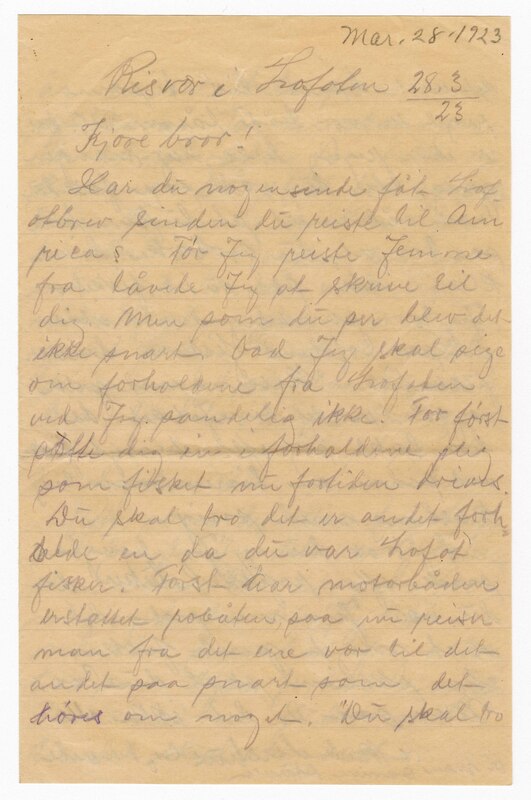 Mar. 28. 1923
Risvær i Lofoten 28.3
23
Kjære bror!
Har du nogensinde fåt Lof
otbrev sinden du reiste til Am
rica? Før Jeg reiste Jemme
fra låvede Jeg at skrive til
dig. Men som du ser blev det
ikke snart. Vad Jeg skal sige
om forholdene fra Lofoten
ved Jeg sandelig ikke. For først
stille dig in i forholdene slig
som fisket nu fortiden drives.
Du skal tro det er andet forh
olde en da du var Lofot
fisker. Først har motorbåden
erstattet robåten saa nu reiser
man fra det ene vær til det
andet saa snart som det
høres om noget. Du skal tro